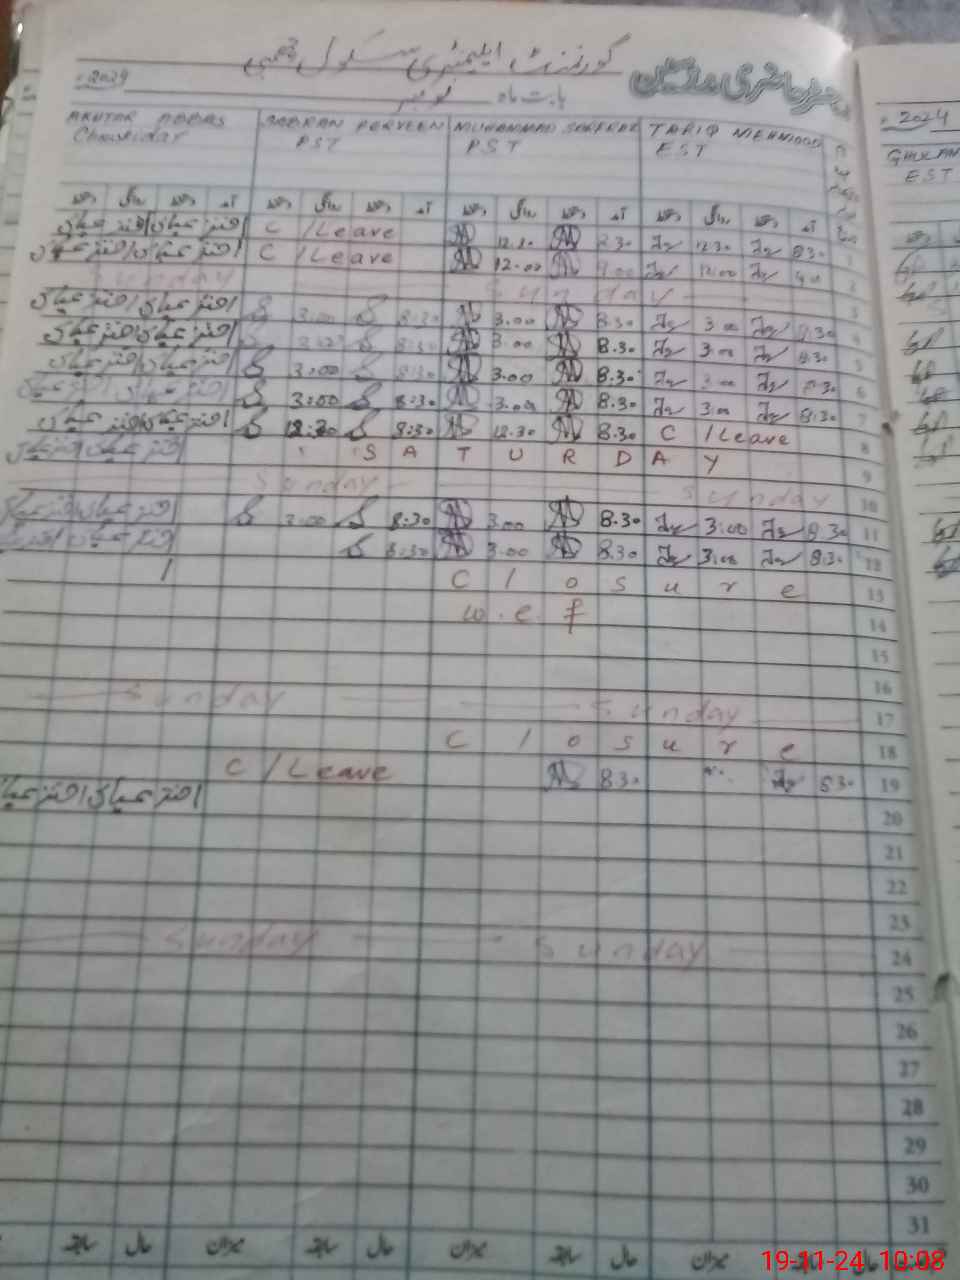 گورنمنٹ ایلیمنٹری سکول
رجسٹر حاضری مدرسین
2024
بابت ماہ نومبر
AKHTAR ABBAS SABRAN PERVEEN MUHAMMAD SARFRAZ TARIQ MEHMOOD
Chowkidar PST PST EST
2024
GHULAM
EST
دستخط روانگی دستخط آمد دستخط روانگی دستخط آمد دستخط روانگی دستخط آمد دستخط روانگی دستخط آمد
اختر عباس اختر عباس C/Leave 12.30 8.30 12.30 8.30 1
اختر عباس اختر عباس C/Leave 12.00 9.00 12.00 9.0 2
Sunday Sunday 3
اختر عباس اختر عباس 3.00 8.30 3.00 8.30 3.00 8.30 4
اختر عباس اختر عباس 8:30 3.00 8.30 3.00 8.30 5
اختر عباس اختر عباس 3.00 8:30 3.00 8.30 3.00 8.30 6
اختر عباس اختر عباس 3:00 8:30 3.00 8.30 3.00 8:30 7
اختر عباس اختر عباس 12.30 8:30 12.30 8.30 C/Leave 8
اختر عباس SATURDAY 9
Sunday Sunday 10
اختر عباس اختر عباس 3.00 8.30 3.00 8.30 3.00 8.30 11
اختر عباس 8:30 3.00 8.30 3.00 8.30 12
Closure 13
w.e.f 14
15
16
Sunday Sunday 17
Closure 18
C/Leave 8.30 8.30 19
اختر عباس اختر عباس 20
21
22
23
Sunday Sunday 24
25
26
27
28
29
30
31
سابقہ حال میزان سابقہ حال میزان سابقہ حال میزان سابقہ حال
19-11-24 10:08